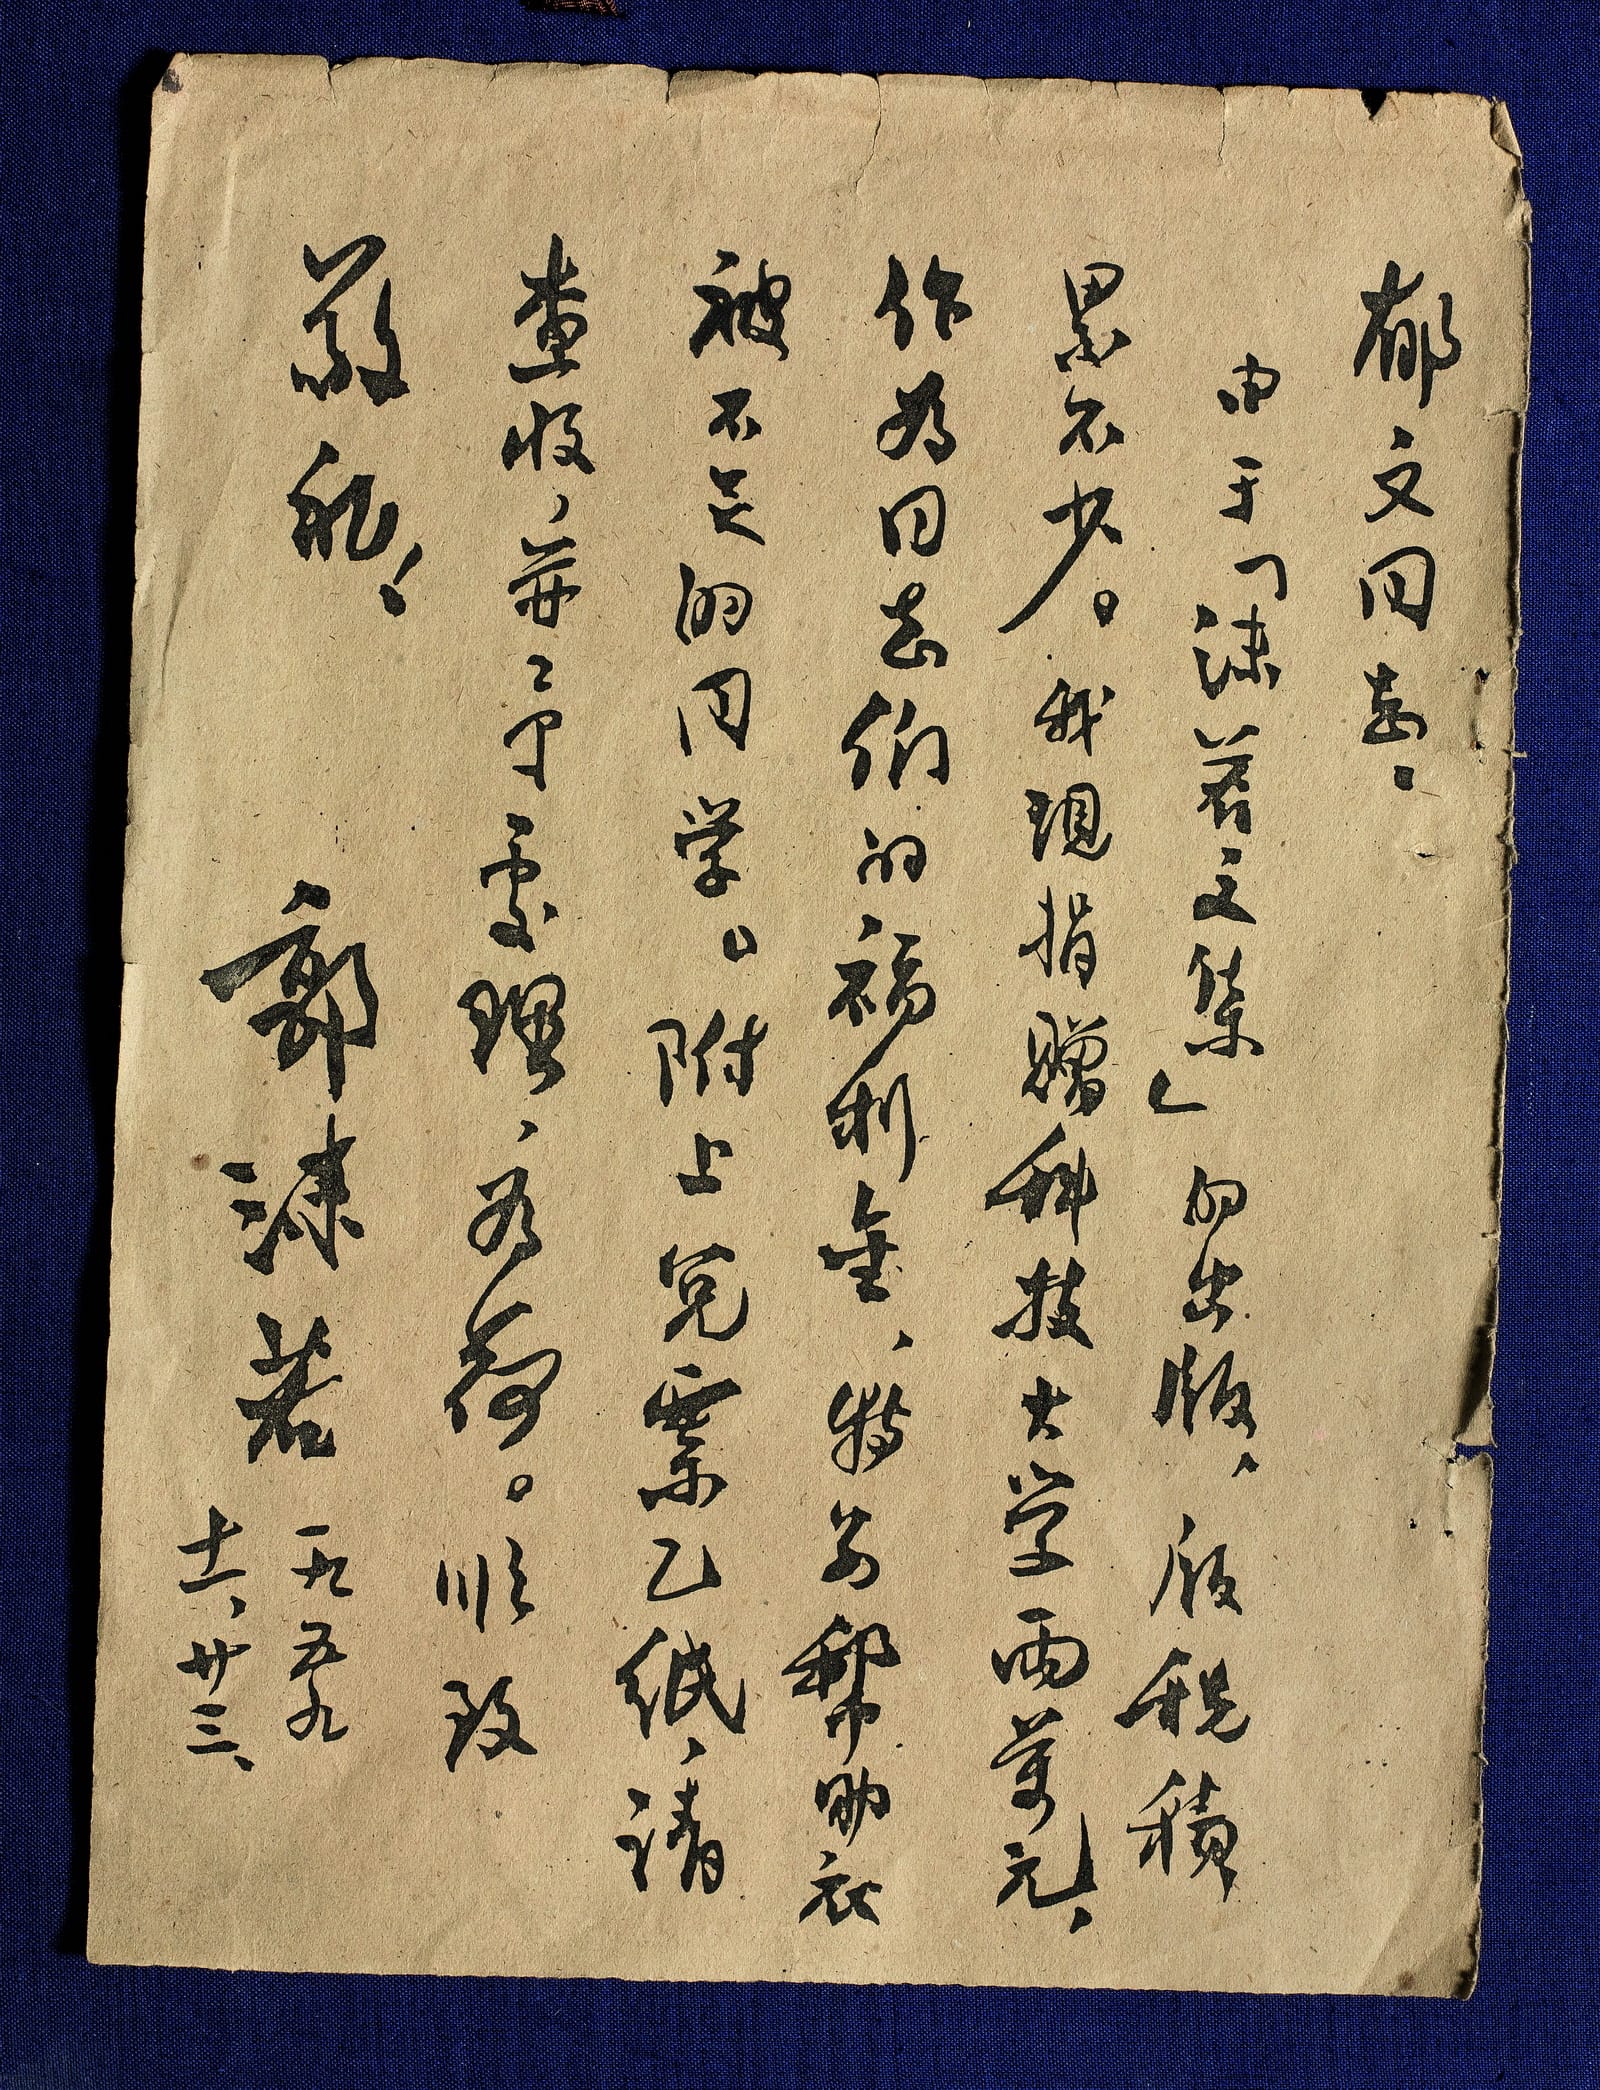 郁文同志：
由于「沫若文集」的出版，版税积
累不少。我现捐赠科技大学两萬元，
作为同志们的福利金，特别帮助衣
被不足的同学。附上兑票乙纸，请
查收，并予處理，为荷。顺致
敬礼！
郭沫若
一九五九
十二、廿三、